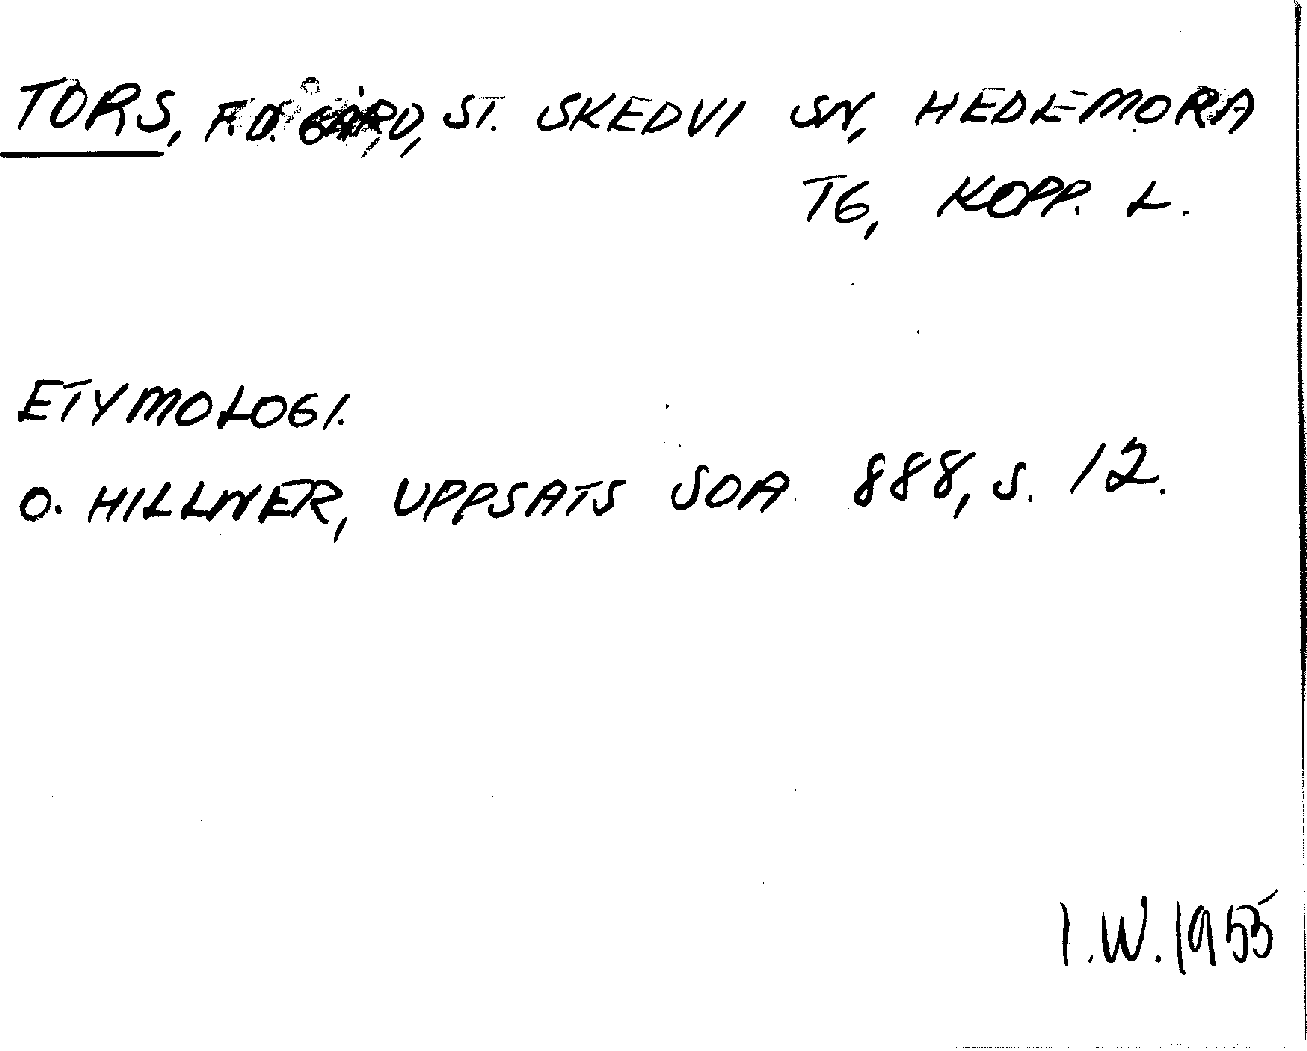 TORS, F.D. GÅRD, ST. SKEDVI SN, HEDEMORA
TG, KOPP. L.
ETYMOLOGI.
O. HILLNER, UPPSATS SOA 888, S. 12.
I.W. 1955